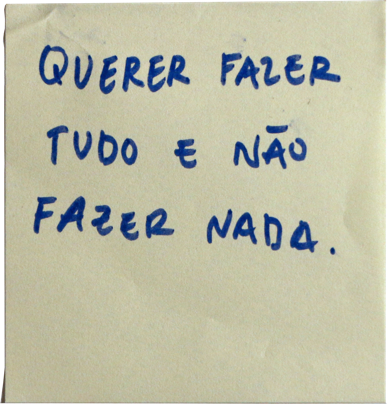 QUERER FAZER
TUDO E NÃO
FAZER NADA.